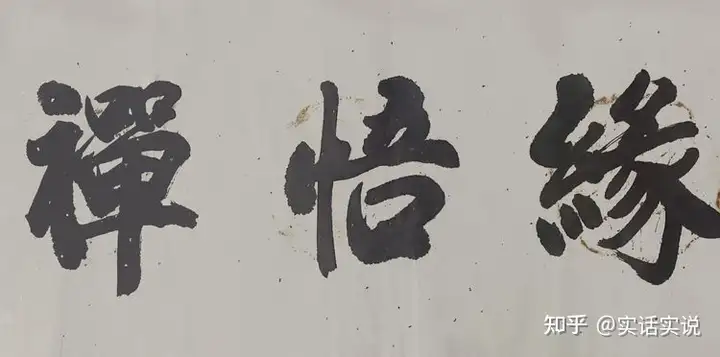 緣悟禪
知乎 @实话实说